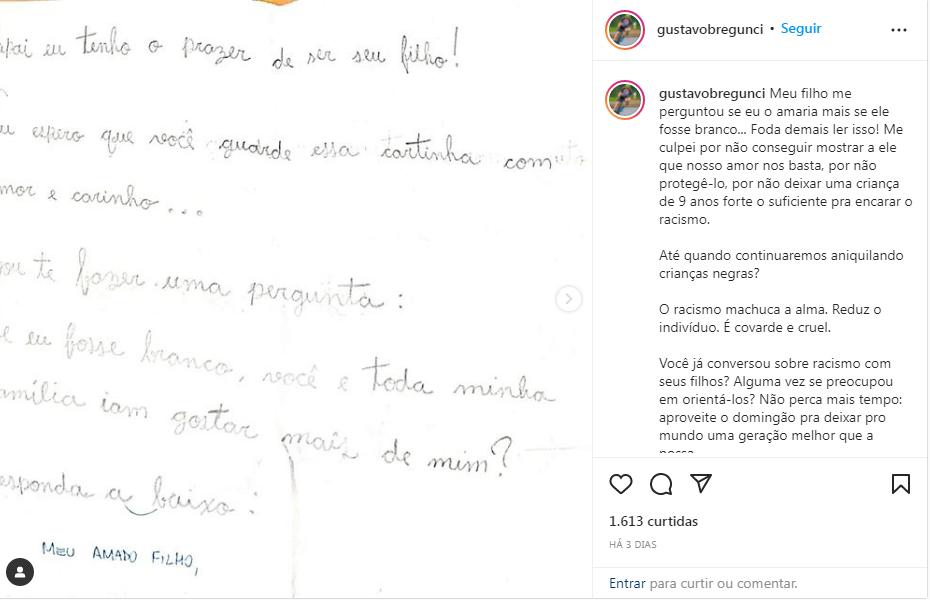 apai eu tenho o prazer de ser seu filho!
u espero que você guarde essa cartinha com
mor e carinho...
ou te fazer uma pergunta:
e eu fosse branco, você e toda minha
amília iam gostar mais de mim?
esponda a baixo:
MEU AMADO FILHO,
gustavobregunci • Seguir
gustavobregunci Meu filho me
perguntou se eu o amaria mais se ele
fosse branco... Foda demais ler isso! Me
culpei por não conseguir mostrar a ele
que nosso amor nos basta, por não
protegê-lo, por não deixar uma criança
de 9 anos forte o suficiente pra encarar o
racismo.
Até quando continuaremos aniquilando
crianças negras?
O racismo machuca a alma. Reduz o
indivíduo. É covarde e cruel.
Você já conversou sobre racismo com
seus filhos? Alguma vez se preocupou
em orientá-los? Não perca mais tempo:
aproveite o domingão pra deixar pro
mundo uma geração melhor que a
1.613 curtidas
HÁ 3 DIAS
Entrar para curtir ou comentar.